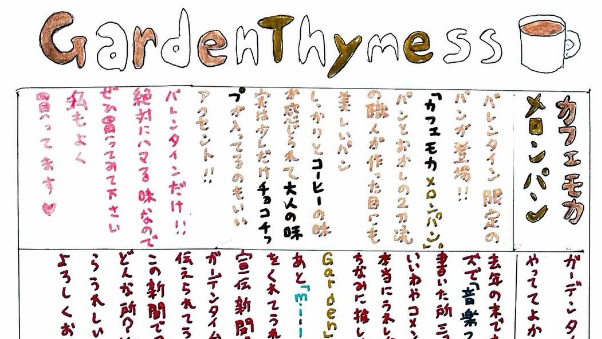 GardenThymess
カフェモカ
メロンパン
バレンタイン限定の
パンが登場!!
「カフェモカメロンパン」
パンとおかしの2刀流
の職人が作った目にも
美しいパン
しっかりとコーヒーの味
が感じられて大人の味
実は少しだけチョコチッ
プが入ってるのもいい
アクセント!!
バレンタインだけ!!
絶対にハマる味なので
ぜひ買ってみて下さい
私もよく
買ってます♡
ガーデンタ
やっててよか
去年の末で
ズで「音楽
書いた所
いいわやコメン
本当にうれし
ちなみに推し
Garden
あと「mil
をくれてうれ
宣伝新聞
ガーデンタイム
伝えられてう
この新聞で
どんな所?
らうれしい
よろしくお